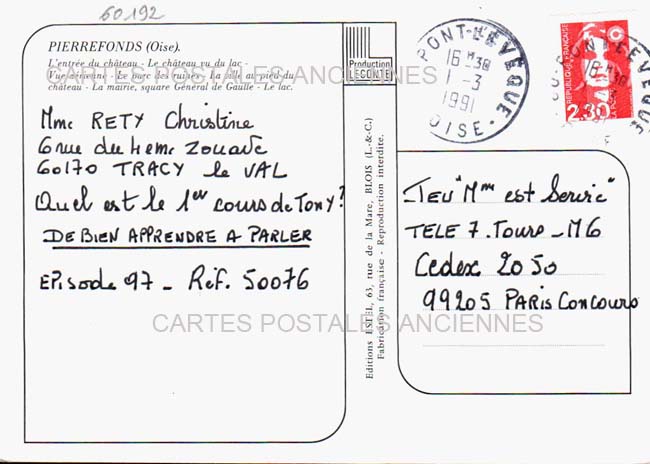 60192
PIERREFONDS (Oise).
L'entrée du château - Le château vu du lac -
Vue aérienne - Le parc des ruines - La ville au pied du
château - La mairie, square Général de Gaulle - Le lac.
Production
LECONTE
Mme RETY Christine
6 rue du 4eme Zouave
60170 TRACY le VAL
Quel est le 1er cours de Tony?
DE BIEN APPRENDRE A PARLER
EPisode 97 - Réf. 50076
Editions ESTEL, 63, rue de la Mare, BLOIS (L.-&-C.)
Fabrication française - Reproduction interdite.
PONT-L'ÉVÊQUE
16 H30
1-3
1991
OISE
PONT-L'ÉVÊQUE
16 H30
RÉPUBLIQUE FRANÇAISE
2,30
JEU "Mme est Servie"
TELE 7. Tours - M6
Cedex 2050
99205 PARIS Concours
CARTES POSTALES ANCIENNES
CARTES POSTALES ANCIENNES